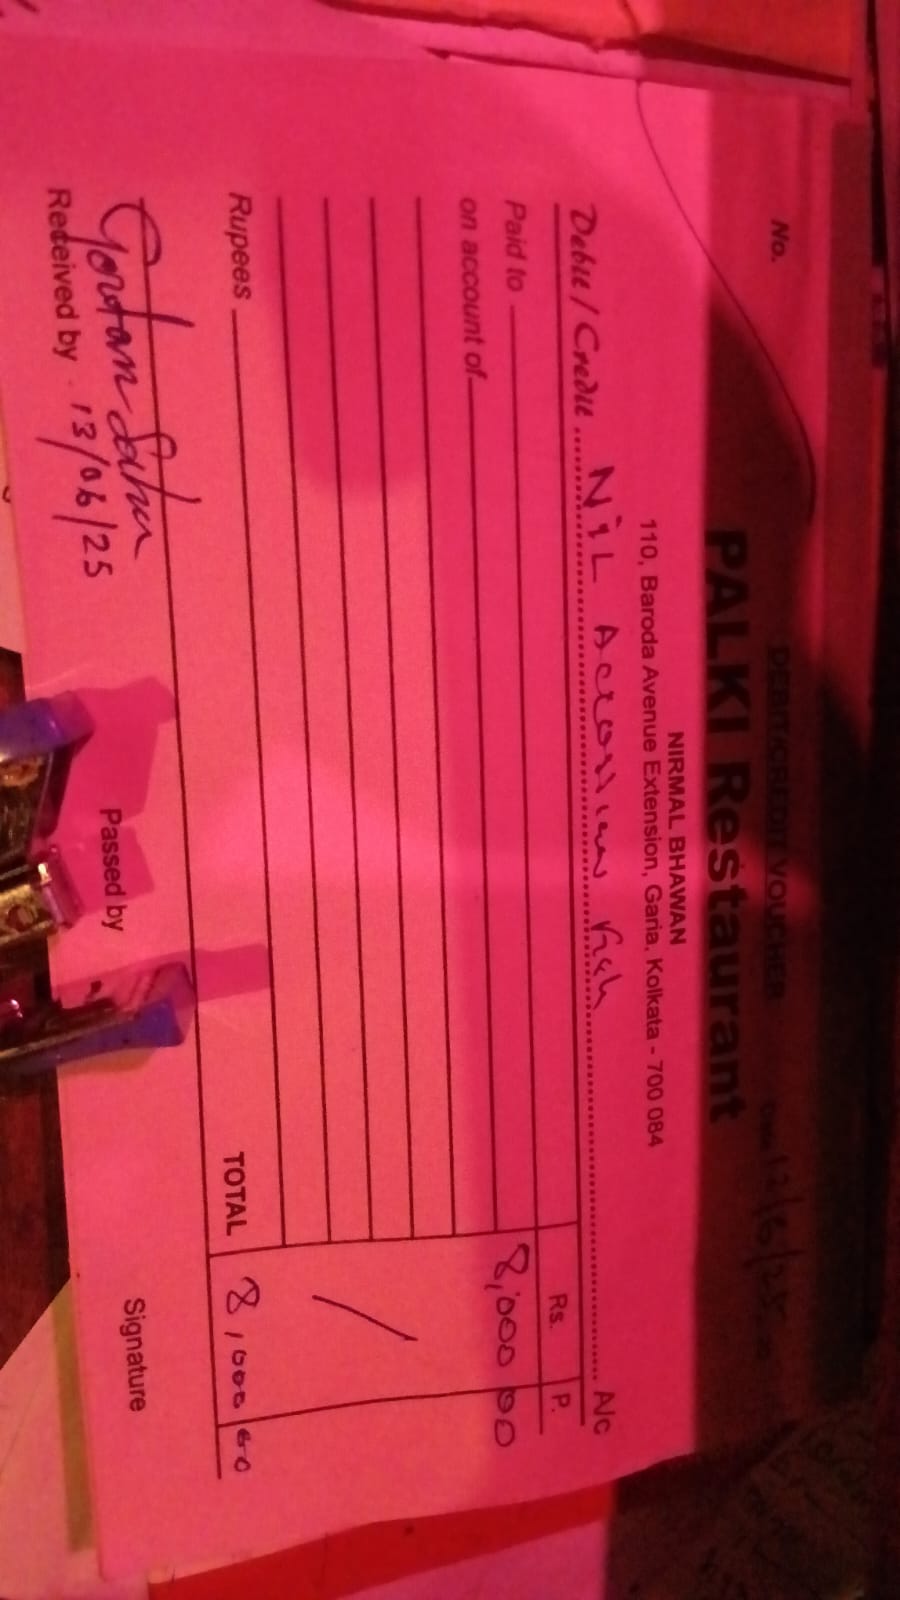 No.
DEBIT/CREDIT VOUCHER
Date 12/6/25
PALKI Restaurant
NIRMAL BHAWAN
110, Baroda Avenue Extension, Garia, Kolkata - 700 084
Debit / Credit NIL A/C
Rs. P.
Paid to 8,000 00
on account of
Rupees TOTAL 8,000 00
Goutam Saha
13/06/25
Received by Passed by Signature